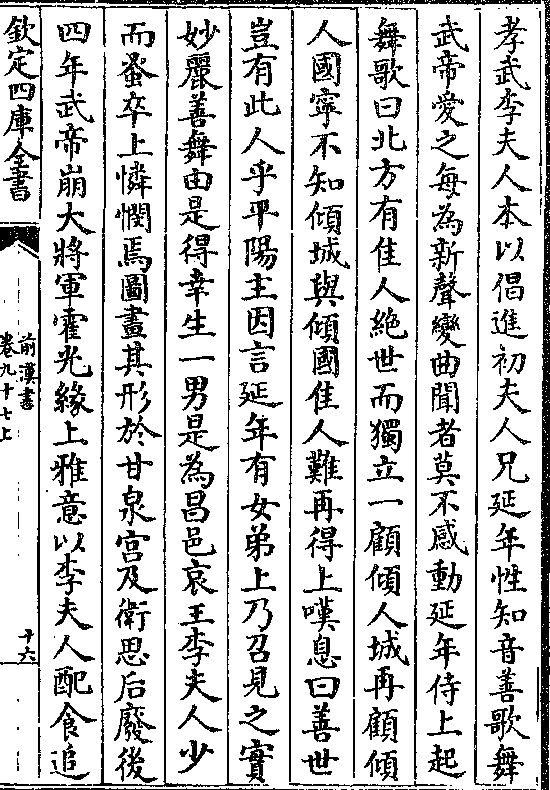 孝武李夫人本以倡進初夫人兄延年性知音善歌舞
武帝愛之每為新聲變曲聞者莫不感動延年侍上起
舞歌曰北方有佳人絶世而獨立一顧傾人城再顧傾
人國寧不知傾城與傾國佳人難再得上嘆息曰善世
豈有此人乎平陽主因言延年有女弟上乃召見之實
妙麗善舞由是得幸生一男是為昌邑哀王李夫人少
而蚤卒上憐憫焉圖畫其形於甘泉宫及衛思后廢後
四年武帝崩大將軍霍光緣上雅意以李夫人配食追
欽定四庫全書
前漢書
卷九十七上
十六